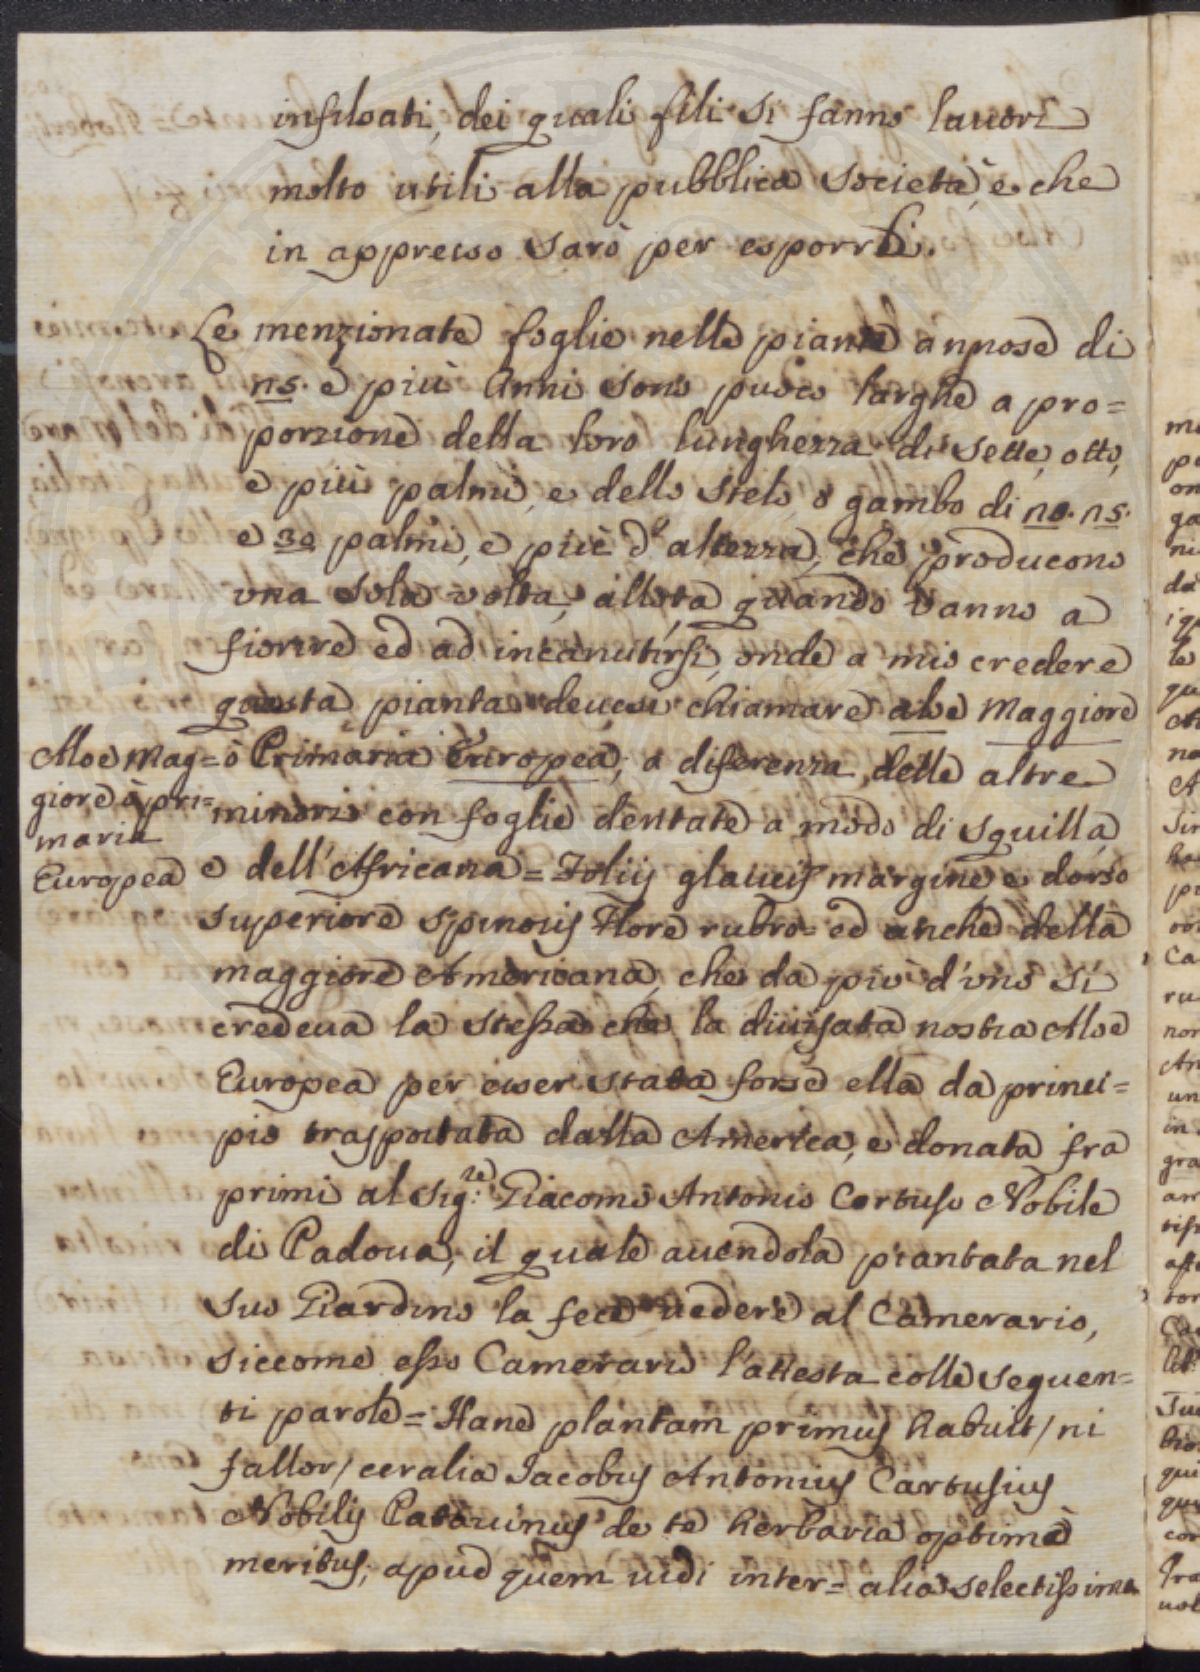 infilsati, dei quali fili si fanno lauori
molto utili alla pubblica Società, e che
in appresso sarò per esporrLi.
Le menzionate foglie nelle piante annose di
ns. e più Anni sono puoco larghe a pro=
porzione della loro lunghezza di sette, otto,
e più palmi, e dello stelo, o gambo di no. ns.
e 30 palmi, e più d'altezza, che producono
una sola volta, allora quando vanno a
fiorire ed ad incanutirsi, onde a mio credere
questa pianta deuesi chiamare aloe Maggiore
ò Primaria Europea, a diferenza delle altre
Aloe Mag=
giore ò pri=
maria
Europea
minori con foglie dentate a modo di squilla,
e dell'Africana = Folijs glaucis margine e dorso
superiore spinosis Flore rubro = ed anche della
maggiore Americana, che da più d'uno si
credeua la stessa che la diuisata nostra Aloe
Europea per esser stata forse ella da princi=
pio trasportata dalla America, e donata fra
primi al Sig:re Giacomo Antonio Cortuso Nobile
di Padoua, il quale auendola piantata nel
suo Giardino la fece uedere al Camerario,
siccome esso Camerario l'attesta colle seguen=
ti parole = Hanc plantam primus habuit / ni
fallor / ceralia Jacobus Antonius Cartusius
Nobilis Patauinus de re herbaria optimè
meritus, apud quem uidi inter = alia selectissima